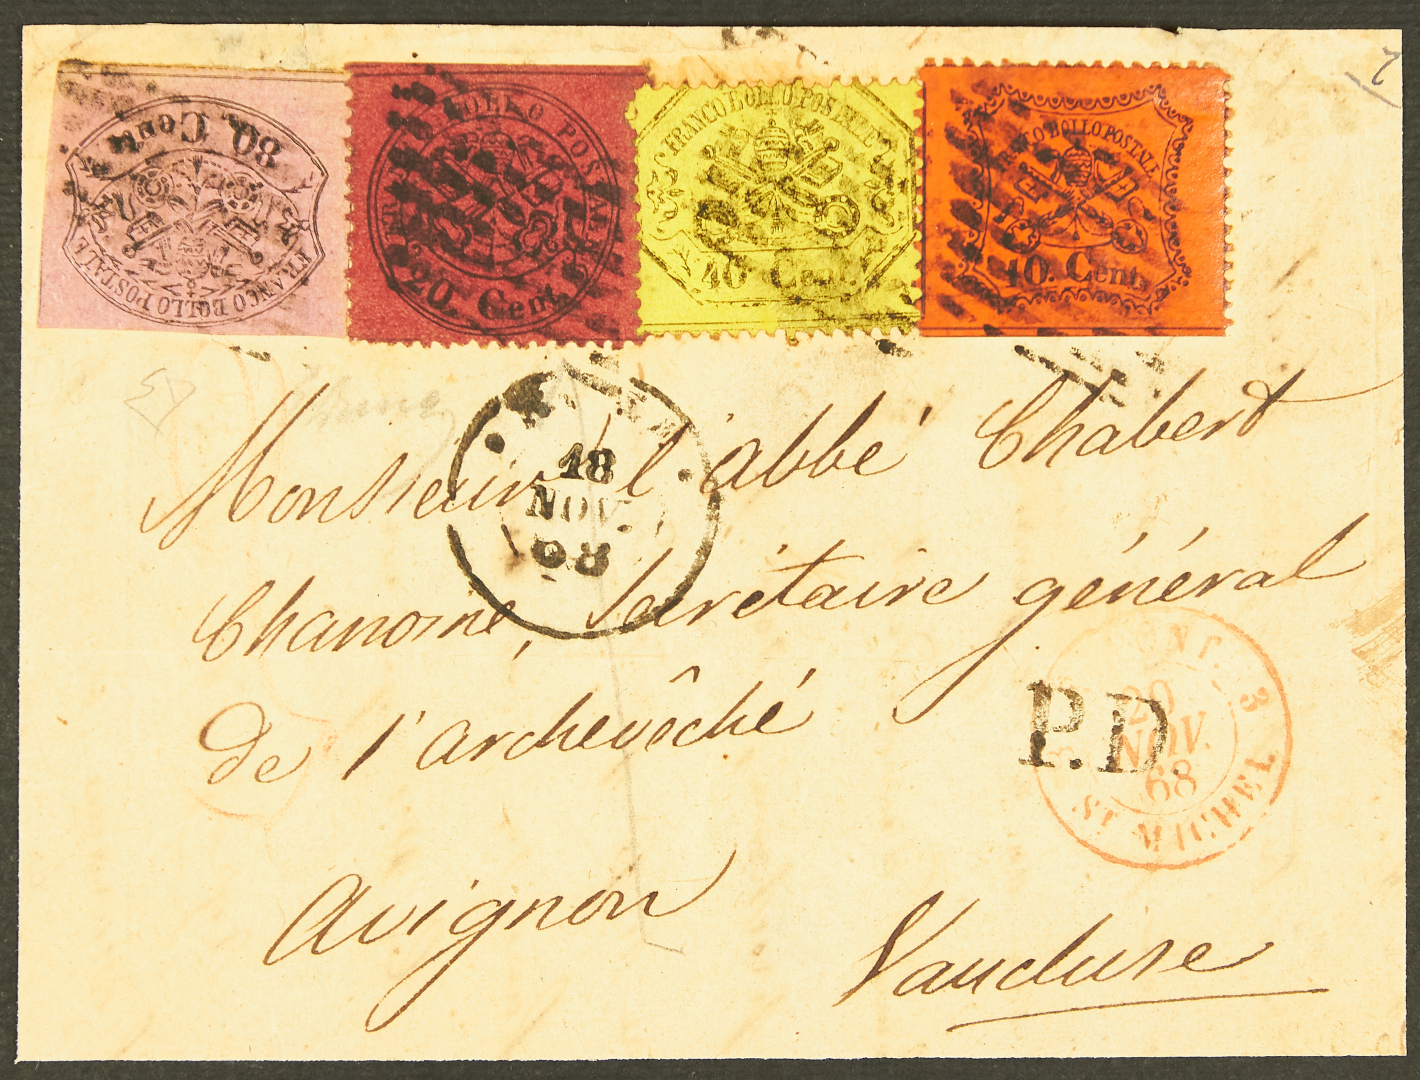 80 Cent.
FRANCO BOLLO POSTALE
BOLLO POSTALE
20. Cent.
FRANCO BOLLO POSTALE
40 Cent.
FRANCO BOLLO POSTALE
10. Cent.
18
NOV.
68
Monsieur l'abbé Chabert
Chanoine, Secrétaire général
de l'archevêché
Avignon
Vaucluse
P.D
PONT. 3
20
NOV.
68
ST MICHEL